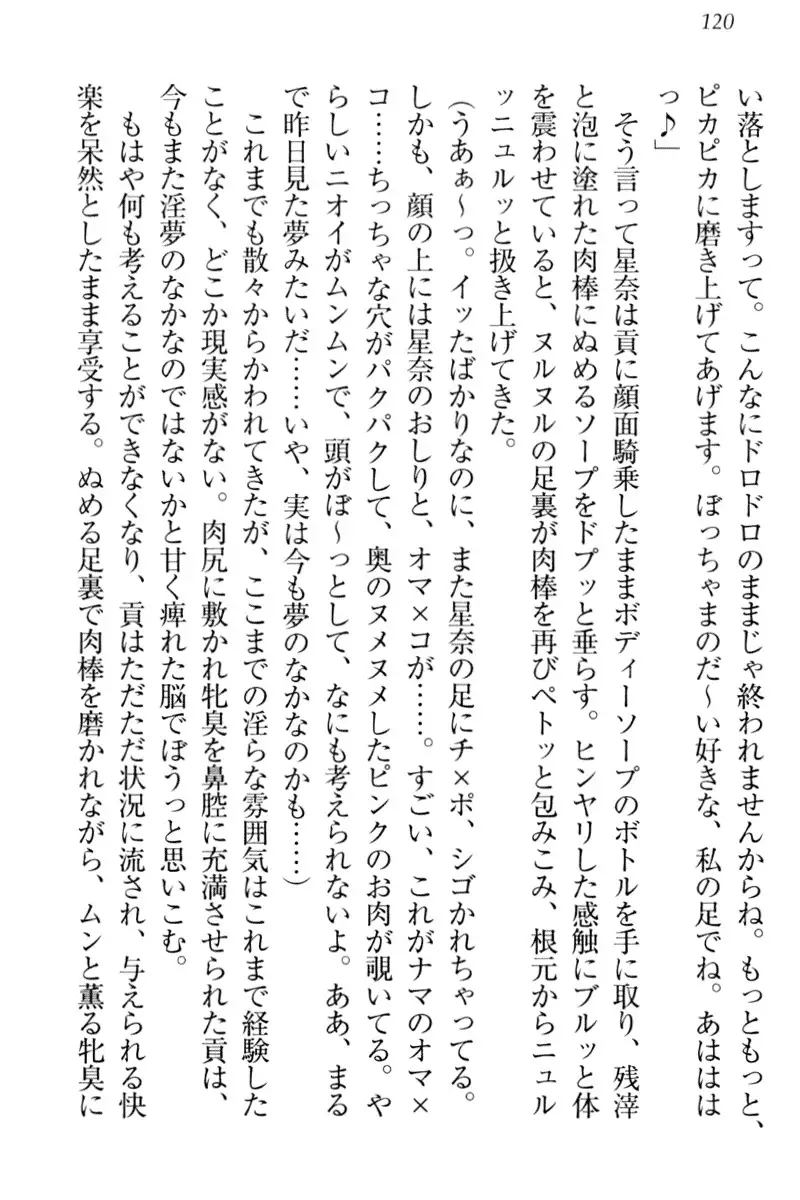 120
い落としますって。こんなにドロドロのままじゃ終われませんからね。もっともっと、
ピカピカに磨き上げてあげます。ぼっちゃまのだ～い好きな、私の足でね。あははは
っ♪」
　そう言って星奈は貢に顔面騎乗したままボディーソープのボトルを手に取り、残滓
と泡に塗れた肉棒にぬめるソープをドプッと垂らす。ヒンヤリした感触にブルッと体
を震わせていると、ヌルヌルの足裏が肉棒を再びペトッと包みこみ、根元からニュル
ッニュルッと扱き上げてきた。
（うあぁ～っ。イッたばかりなのに、また星奈の足にチ×ポ、シゴかれちゃってる。
しかも、顔の上には星奈のおしりと、オマ×コが……。すごい、これがナマのオマ×
コ……ちっちゃな穴がパクパクして、奥のヌメヌメしたピンクのお肉が覗いてる。や
らしいニオイがムンムンで、頭がぼ～っとして、なにも考えられないよ。ああ、まる
で昨日見た夢みたいだ……いや、実は今も夢のなかなのかも……）
　これまでも散々からかわれてきたが、ここまでの淫らな雰囲気はこれまで経験した
ことがなく、どこか現実感がない。肉尻に敷かれ牝臭を鼻腔に充満させられた貢は、
今もまた淫夢のなかなのではないかと甘く痺れた脳でぼうっと思いこむ。
　もはや何も考えることができなくなり、貢はただただ状況に流され、与えられる快
楽を呆然としたまま享受する。ぬめる足裏で肉棒を磨かれながら、ムンと薫る牝臭に